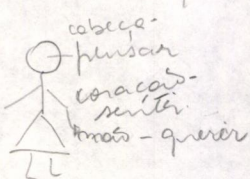 cabeça-
pensar
coração-
sentir
mão - querer